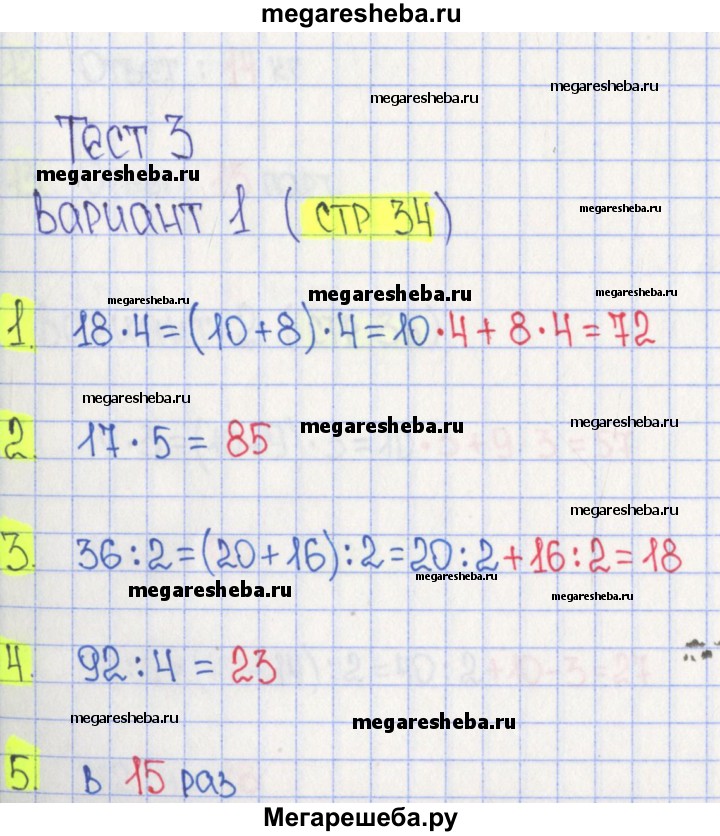 megaresheba.ru
megaresheba.ru
Тест 3
megaresheba.ru
megaresheba.ru
вариант 1 (стр 34)
megaresheba.ru
megaresheba.ru
megaresheba.ru
1. 18·4=(10+8)·4=10·4+8·4=72
megaresheba.ru
megaresheba.ru
megaresheba.ru
2. 17·5=85
megaresheba.ru
3. 36:2=(20+16):2=20:2+16:2=18
megaresheba.ru
megaresheba.ru
megaresheba.ru
4. 92:4=23
megaresheba.ru
megaresheba.ru
5. в 15 раз
Мегарешеба.ру